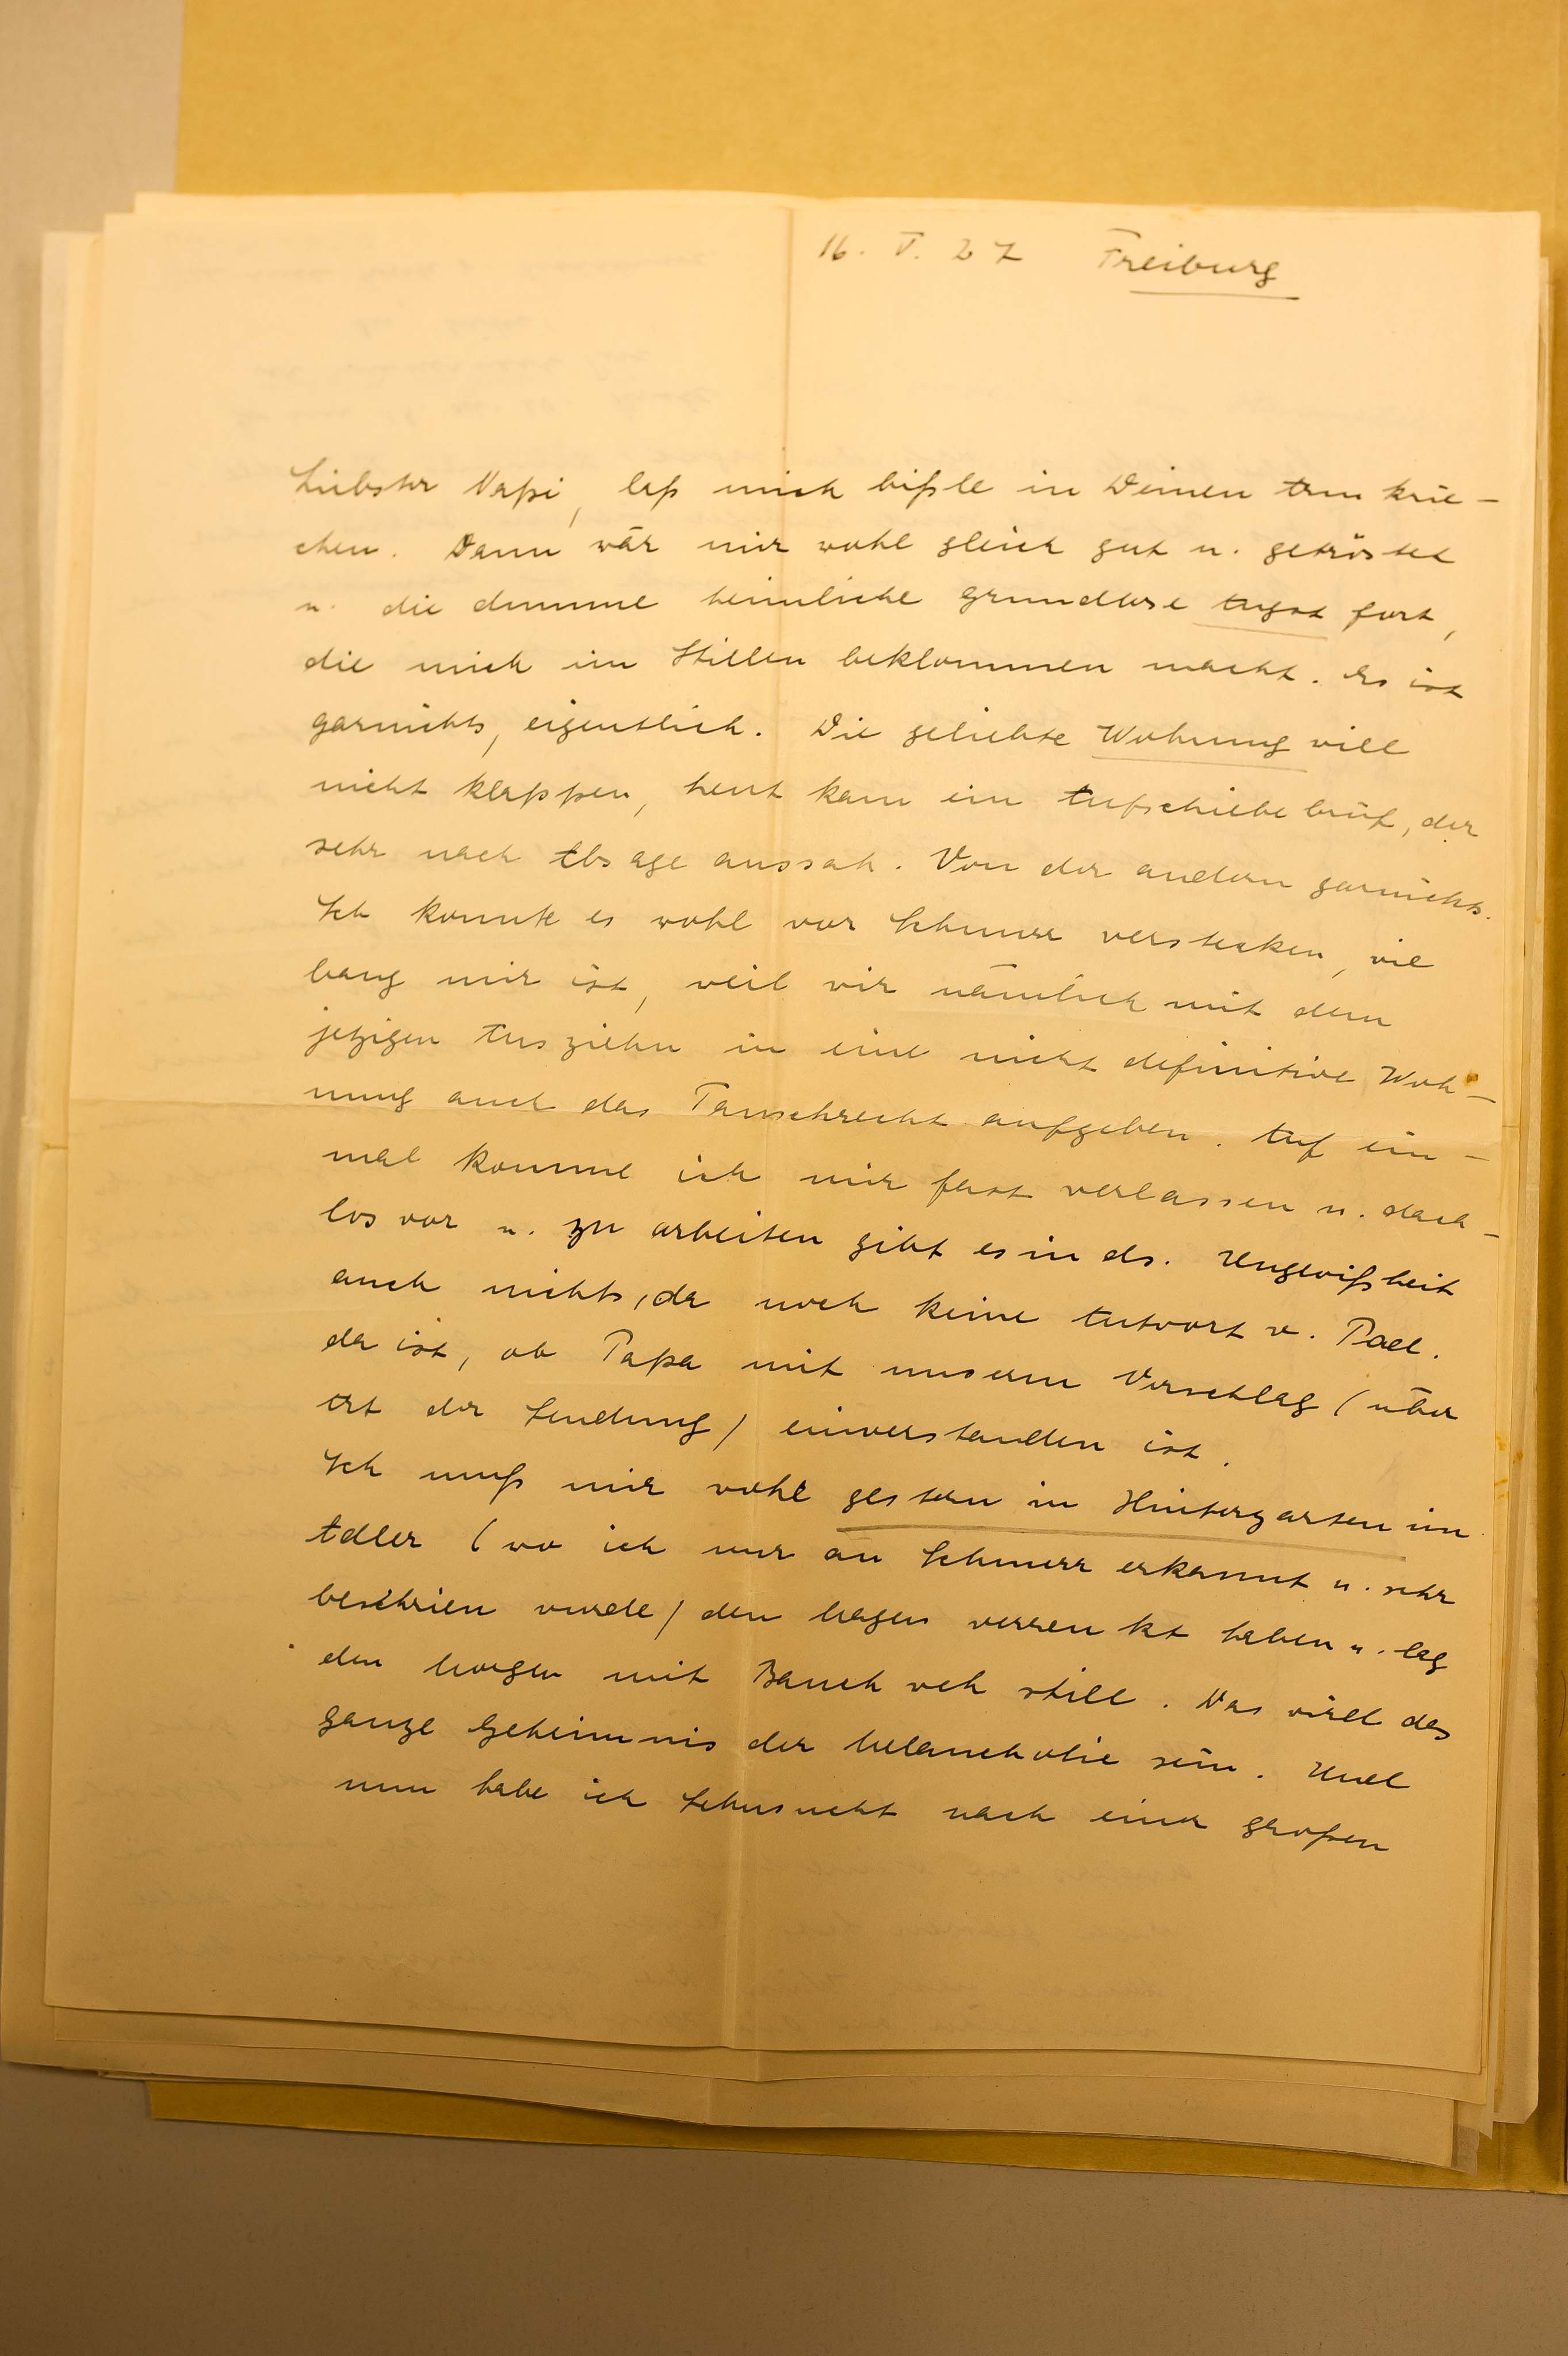 16. V. 27 Freiburg
Liebster Napi, laß mich bißle in Deinen Arm krie-
chen. Dann wär mir wohl gleich gut u. getröstet
u. die dumme heimliche grundlose Angst fort,
die mich im Stillen beklommen macht. Es ist
garnichts, eigentlich. Die geliebte Wohnung will
nicht klappen, heut kam ein Aufschiebebrief, der
sehr nach Absage aussah. Von der andern garnichts.
Ich konnte es wohl vor Schmerr verstecken, wie
bang mir ist, weil wir nämlich mit dem
jetzigen Ausziehn in eine nicht definitive Woh-
nung auch das Tauschrecht aufgeben. Auf ein-
mal komme ich mir fast verlassen u. dach-
los vor u. zu arbeiten gibt es in ds. Ungewißheit
auch nichts, da noch keine Antwort v.
da ist, ob Papa mit unserm Vorschlag (über
Art der Sendung) einverstanden ist.
Ich muß mir wohl gestern in Hinterzarten im
Adler (wo ich nur an Schmerr erkannt u. sehr
beschrien wurde) den Magen verrenkt haben u. lag
den Morgen mit Bauchweh still. Das wird das
ganze Geheimnis der Melancholie sein. Und
nun habe ich Sehnsucht nach einer großen